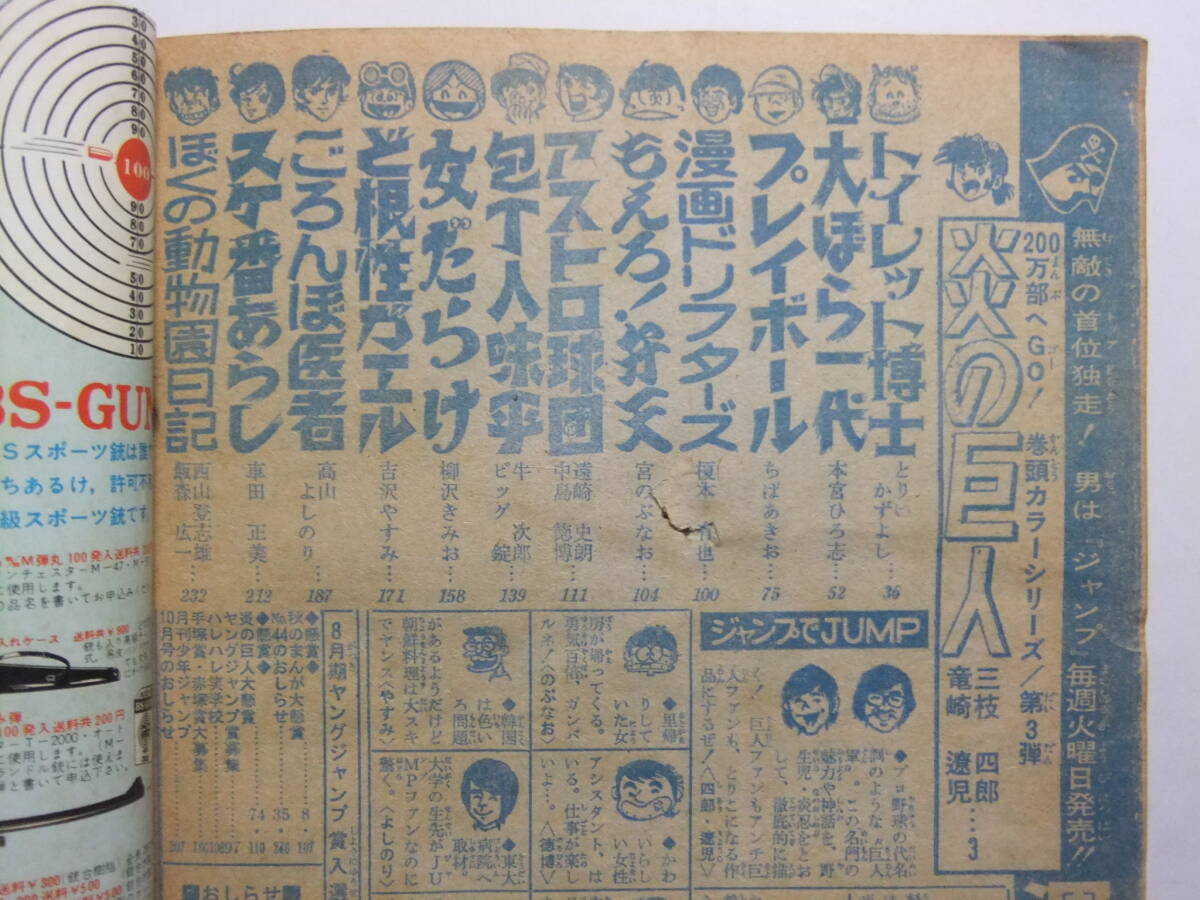 無敵の首位独走！ 男は「ジャンプ」毎週火曜日発売!!
200万部へGO！ 巻頭カラーシリーズ/第3弾
炎の巨人
三枝 四郎
竜崎 遼児…3
トイレット博士
とりい かずよし…36
大ほら一代
本宮ひろ志…52
プレイボール
ちばあきお…75
漫画ドリフターズ
榎本 有也…100
もえろ！弁天
宮のぶなお…104
アストロ球団
遠崎 史朗
中島 徳博…111
包丁人味平
牛 次郎
ビッグ 錠…139
女だらけ
柳沢きみお…158
ど根性ガエル
吉沢やすみ…171
ごろんぼ医者
高山 よしのり…187
スケ番あらし
車田 正美…212
ぼくの動物園日記
西山登志雄
飯森 広一…232
ジャンプでJUMP
◆プロ野球の代名
詞のような〝巨人
軍〟。この名門の
魅力や神話を、野
生児・炎忍をとお
して、徹底的に描
く！ 巨人ファンもアンチ巨
人ファンも、とりこになる作
品にするぜ！〈四郎・遼児〉
◆里帰
りして
いた女
房が帰ってくる。
勇気百倍、ガンバ
ルネ！〈のぶなお〉
◆韓国
は色い
ろ問題
があるようだけど
朝鮮料理は大スキ
でヤンス〈やすみ〉
◆かわ
いらし
い女性
アシスタント、は
いる。仕事が楽し
いよ…。〈徳博〉
◆東大
病院へ
取材。
大学の生先がJU
MPファンなのに
驚く。〈よしのり〉
8月期ヤングジャンプ賞入選
◆懸賞◆
秋のまんが大懸賞…8・197
No.44のおしらせ…35・246
◆懸賞◆
炎の巨人大懸賞…74・110
ヤングジャンプ賞募集
ハレハレ笑学校
手塚賞・赤塚賞大募集
月刊少年ジャンプ
10月号のおしらせ…207
おしらせ
30
40
50
60
70
80
90
100
90
80
70
50
40
30
20
10
BS-GUN
Sスポーツ銃は誰
ちあるけ，許可不
級スポーツ銃です
%M弾丸 100発入送料共
ンチェスターM-47・M-
に使用します。
の品名を書いてお申込みくだ
入れケース 送料共￥900
100発入送料共200円
ター T-2000・オート
に使用します。（M-
ンドル銃には使え
弾と書いて申込下さい。
送料￥300（銃台樹脂